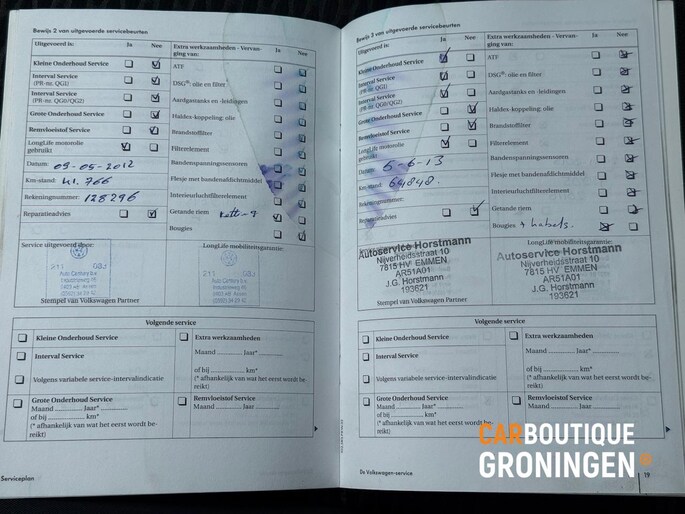 Bewijs 2 van uitgevoerde servicebeurten
Uitgevoerd is: Ja Nee
Kleine Onderhoud Service
Interval Service
(PR-nr. QG1)
Interval Service
(PR-nr. QG0/QG2)
Grote Onderhoud Service
Remvloeistof Service
LongLife motorolie
gebruikt
Datum: 09-05-2012
Km-stand: 41.766
Rekeningnummer: 128296
Reparatieadvies
Extra werkzaamheden - Vervan-
ging van: Ja Nee
ATF
DSG®: olie en filter
Aardgastanks en -leidingen
Haldex-koppeling; olie
Brandstoffilter
Filterelement
Bandenspanningssensoren
Flesje met bandenafdichtmiddel
Interieurluchtfilterelement
Getande riem
Bougies
Service uitgevoerd door:
LongLife mobiliteitsgarantie:
211
211
Stempel van Volkswagen Partner
Volgende service
Kleine Onderhoud Service
Interval Service
Volgens variabele service-intervalindicatie
Grote Onderhoud Service
Maand Jaar*
of bij km*
(* afhankelijk van wat het eerst wordt be-
reikt)
Extra werkzaamheden
Maand Jaar*
of bij km*
(* afhankelijk van wat het eerst wordt be-
reikt)
Remvloeistof Service
Serviceplan
Bewijs 3 van uitgevoerde servicebeurten
Uitgevoerd is: Ja Nee
Kleine Onderhoud Service
Interval Service
(PR-nr. QG1)
Interval Service
(PR-nr. QG0/QG2)
Grote Onderhoud Service
Remvloeistof Service
LongLife motorolie
gebruikt
Datum: 5-6-13
Km-stand: 64848.
Rekeningnummer:
Reparatieadvies
Extra werkzaamheden - Vervan-
ging van: Ja Nee
ATF
DSG®: olie en filter
Aardgastanks en -leidingen
Haldex-koppeling; olie
Brandstoffilter
Filterelement
Bandenspanningssensoren
Flesje met bandenafdichtmiddel
Interieurluchtfilterelement
Getande riem
Bougies + kabels.
LongLife mobiliteitsgarantie:
Autoservice Horstmann
Nijverheidsstraat 10
7815 HV EMMEN
AR51A01
J.G. Horstmann
193621
Autoservice Horstmann
Nijverheidsstraat 10
7815 HV EMMEN
AR51A01
J.G. Horstmann
193621
Stempel van Volkswagen Partner
Volgende service
Kleine Onderhoud Service
Interval Service
Volgens variabele service-intervalindicatie
Grote Onderhoud Service
Maand Jaar*
of bij km*
(* afhankelijk van wat het eerst wordt be-
reikt)
Extra werkzaamheden
Maand Jaar*
of bij km*
(* afhankelijk van wat het eerst wordt be-
reikt)
Remvloeistof Service
De Volkswagen-service
19
CARBOUTIQUE
GRONINGEN